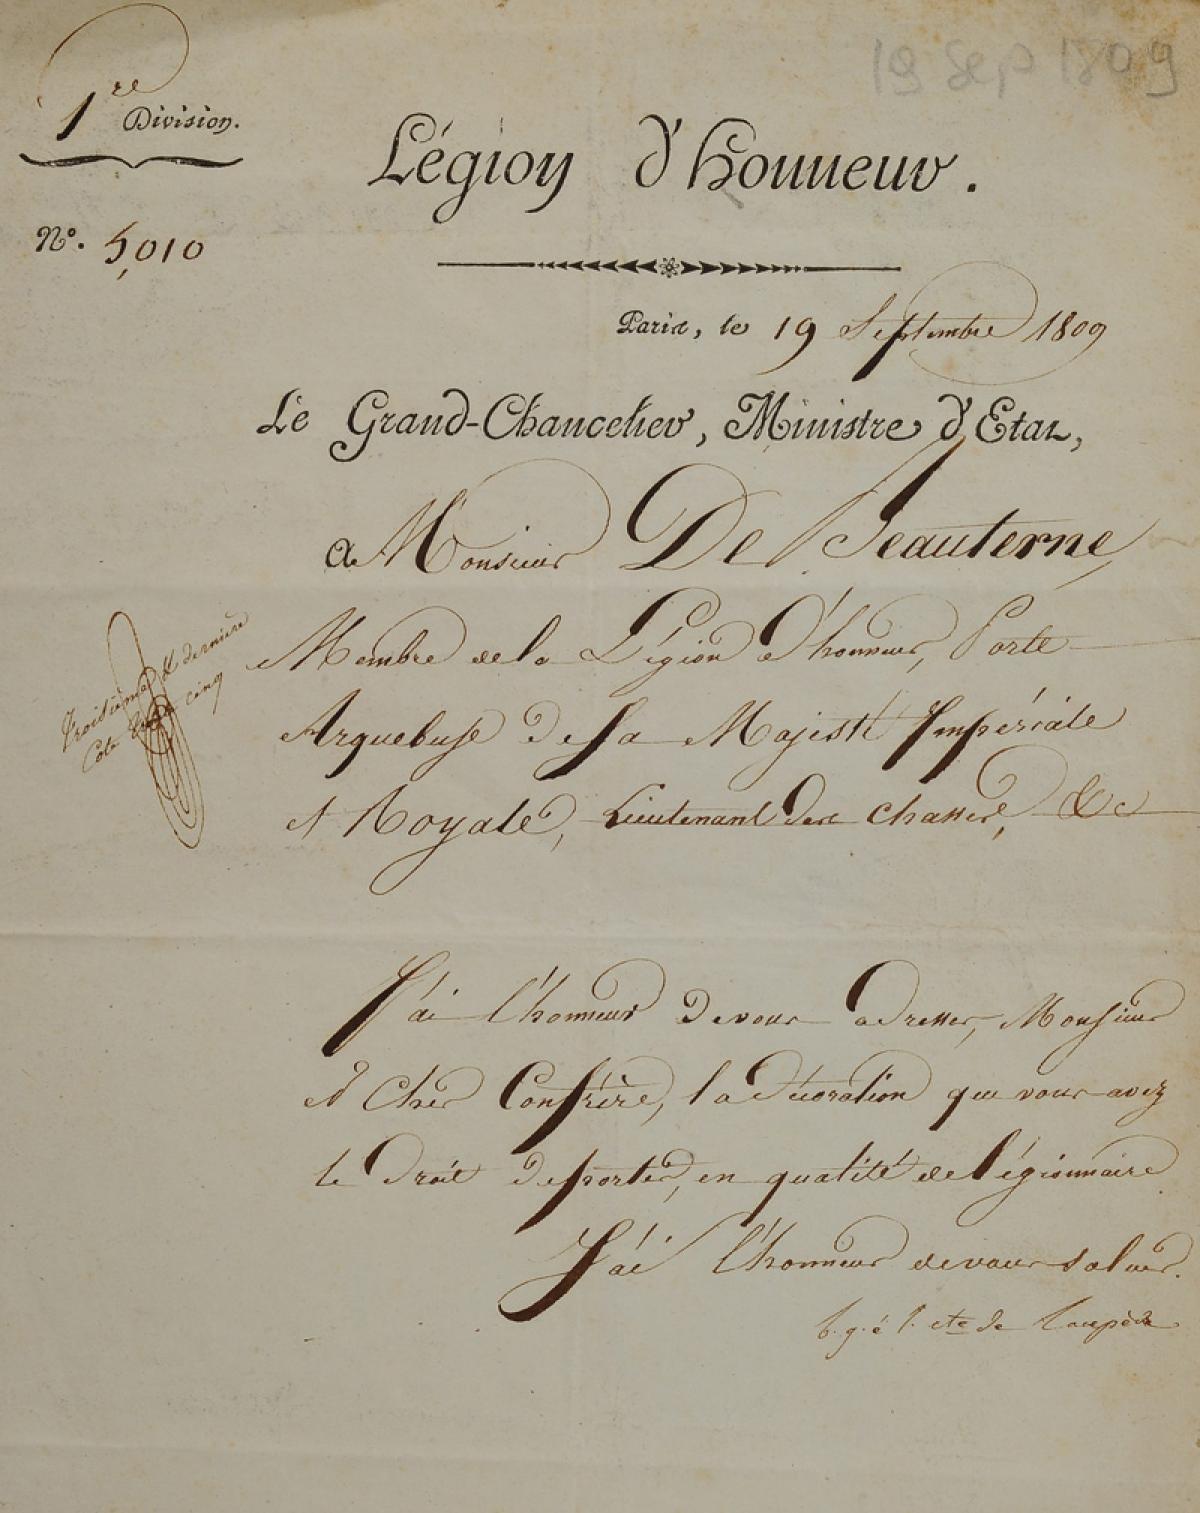 19 Sep 1809
1re Division.
Légion d'honneur.
No. 5,010
Paris, le 19 Septembre 1809
Le Grand-Chancelier, Ministre d'Etat,
a Monsieur De Beauterne,
Membre de la Légion d'honneur, Porte
Arquebuse de Sa Majesté Impériale
et Royale, Lieutenant des chasses, &c
troisieme & derniere
Cote cinq
J'ai l'honneur de vous adresser, Monsieur
et cher Confrère, la décoration que vous avez
le droit de porter, en qualité de légionnaire
J'ai l'honneur de vous saluer.
b. g. é. l. cte de Lacepède